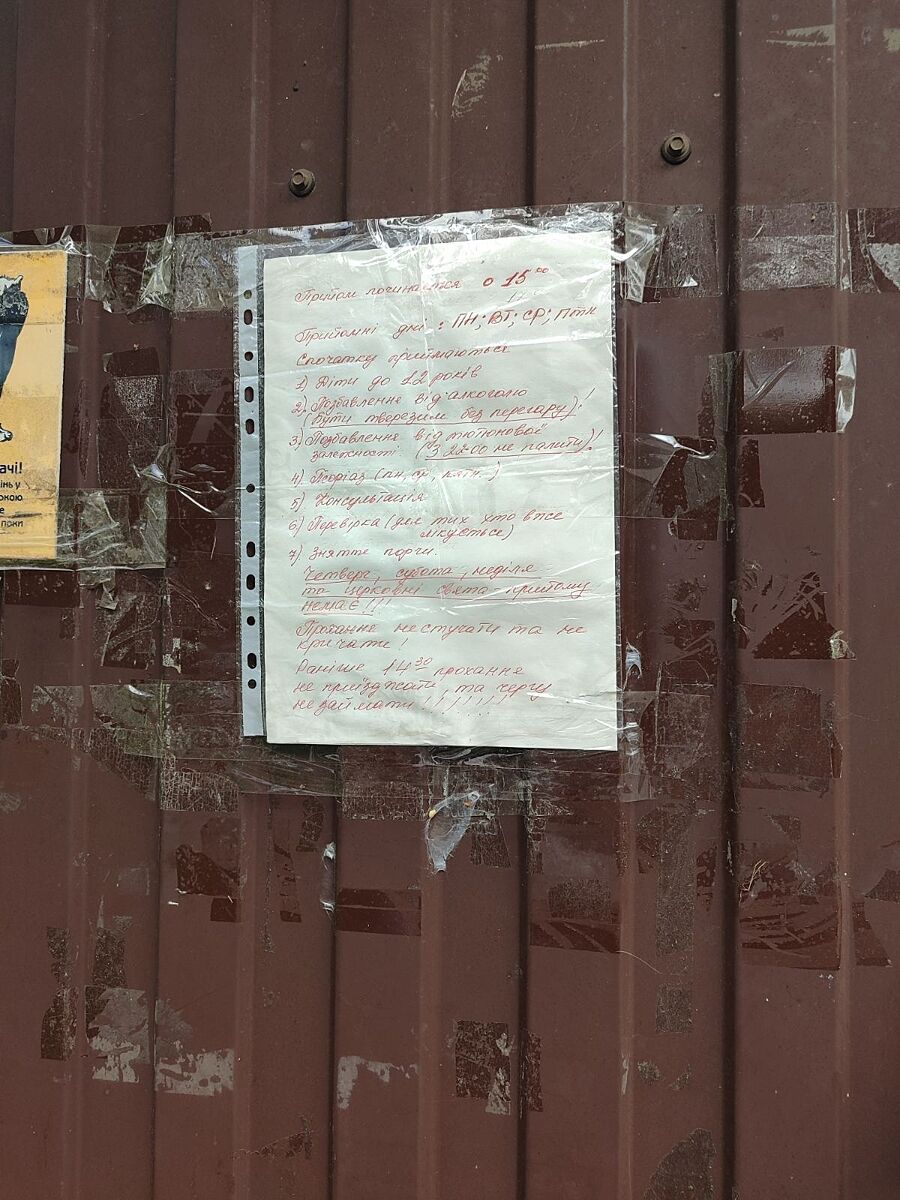 Прийом починається о 15⁰⁰
Прийомні дні : ПН; ВТ; СР; ПТН
Спочатку приймаються
1) Діти до 12 років
2) Позбавлення від алкоголю
(бути тверезим без перегару)!
3) Позбавлення від тютюнової
залежності (З 22⁰⁰ не палити)!
4) Псоріаз (пн, ср, птн.)
5) Консультація
6) Перевірка (для тих хто вже
лікується)
7) Зняття порчі.
Четверг, субота, неділя -
та церковні свята - прийому
немає!!!
Прохання не стучати та не
кричати!
Раніше 14³⁰ прохання
не приїзджати, та чергу
не займати!!!!!!!
ачі!
інь у
окою
е
поки